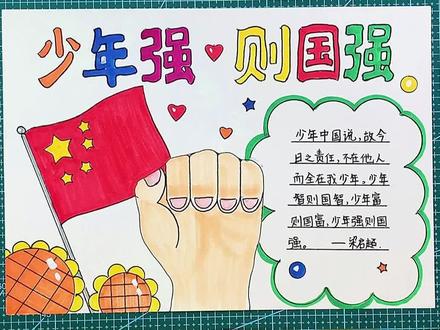 少年强 则国强
少年中国说，故今
日之责任，不在他人
而全在我少年。少年
智则国智，少年富
则国富，少年强则国
强。 ——梁启超